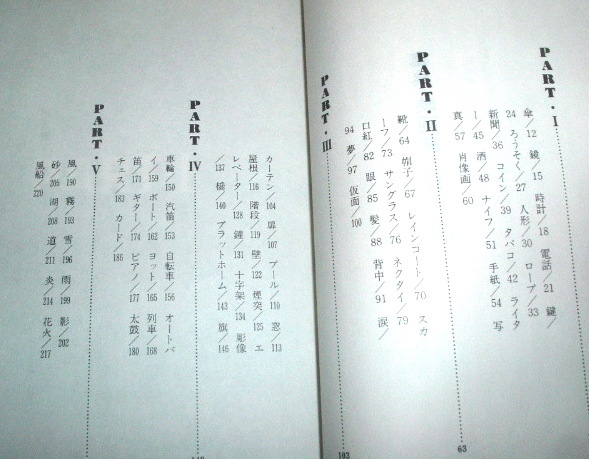 PART・I
傘／12 鏡／15 時計／18 電話／21 鍵／
24 ろうそく／27 人形／30 ロープ／33
新聞／36 コイン／39 タバコ／42 ライタ
ー／45 酒／48 ナイフ／51 手紙／54 写
真／57 肖像画／60
PART・II
63
靴／64 帽子／67 レインコート／70 スカ
ーフ／73 サングラス／76 ネクタイ／79
口紅／82 眼／85 髪／88 背中／91 涙／
94 夢／97 仮面／100
PART・III
103
カーテン／104 扉／107 プール／110 窓／113
屋根／116 階段／119 壁／122 煙突／125 エ
レベーター／128 鐘／131 十字架／134 彫像
／137 橋／140 プラットホーム／143 旗／146
PART・IV
149
車輪／150 汽笛／153 自転車／156 オートバ
イ／159 ボート／162 ヨット／165 列車／168
笛／171 ギター／174 ピアノ／177 太鼓／180
チェス／183 カード／186
PART・V
風／190 霧／193 雪／196 雨／199 影／202
砂／205 湖／208 道／211 炎／214 花火／217
風船／220